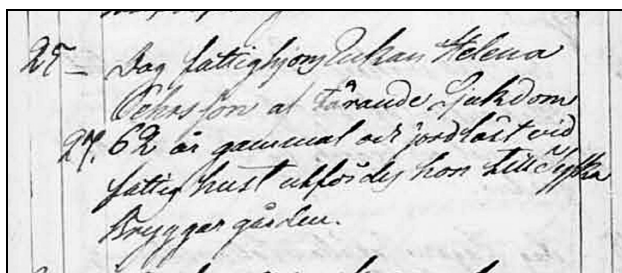 25 – Dog fattighjon Enkan Helena
Öehrsson af tärande Sjukdom
27. 62 år gammal och jordfäst vid
fattighuset utfördes hon till Tyska
Bryggar gården.